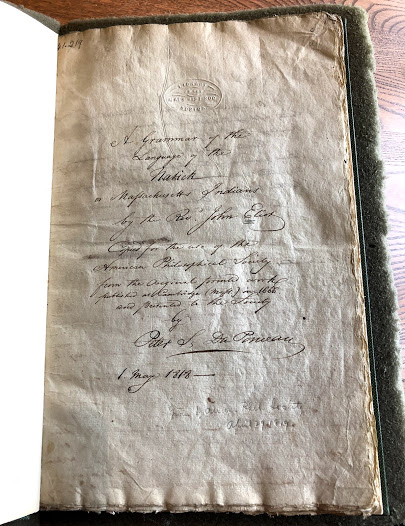 A Grammar of the
Language of the
Natick
or Massachusetts Indians
by the Revd. John Eliot
Copied for the use of the
American Philosophical Society
from the original printed work
published at Cambridge (Masstts.) in 1666
and presented to the Society
by
Peter S. Du Ponceau
1 May 1818